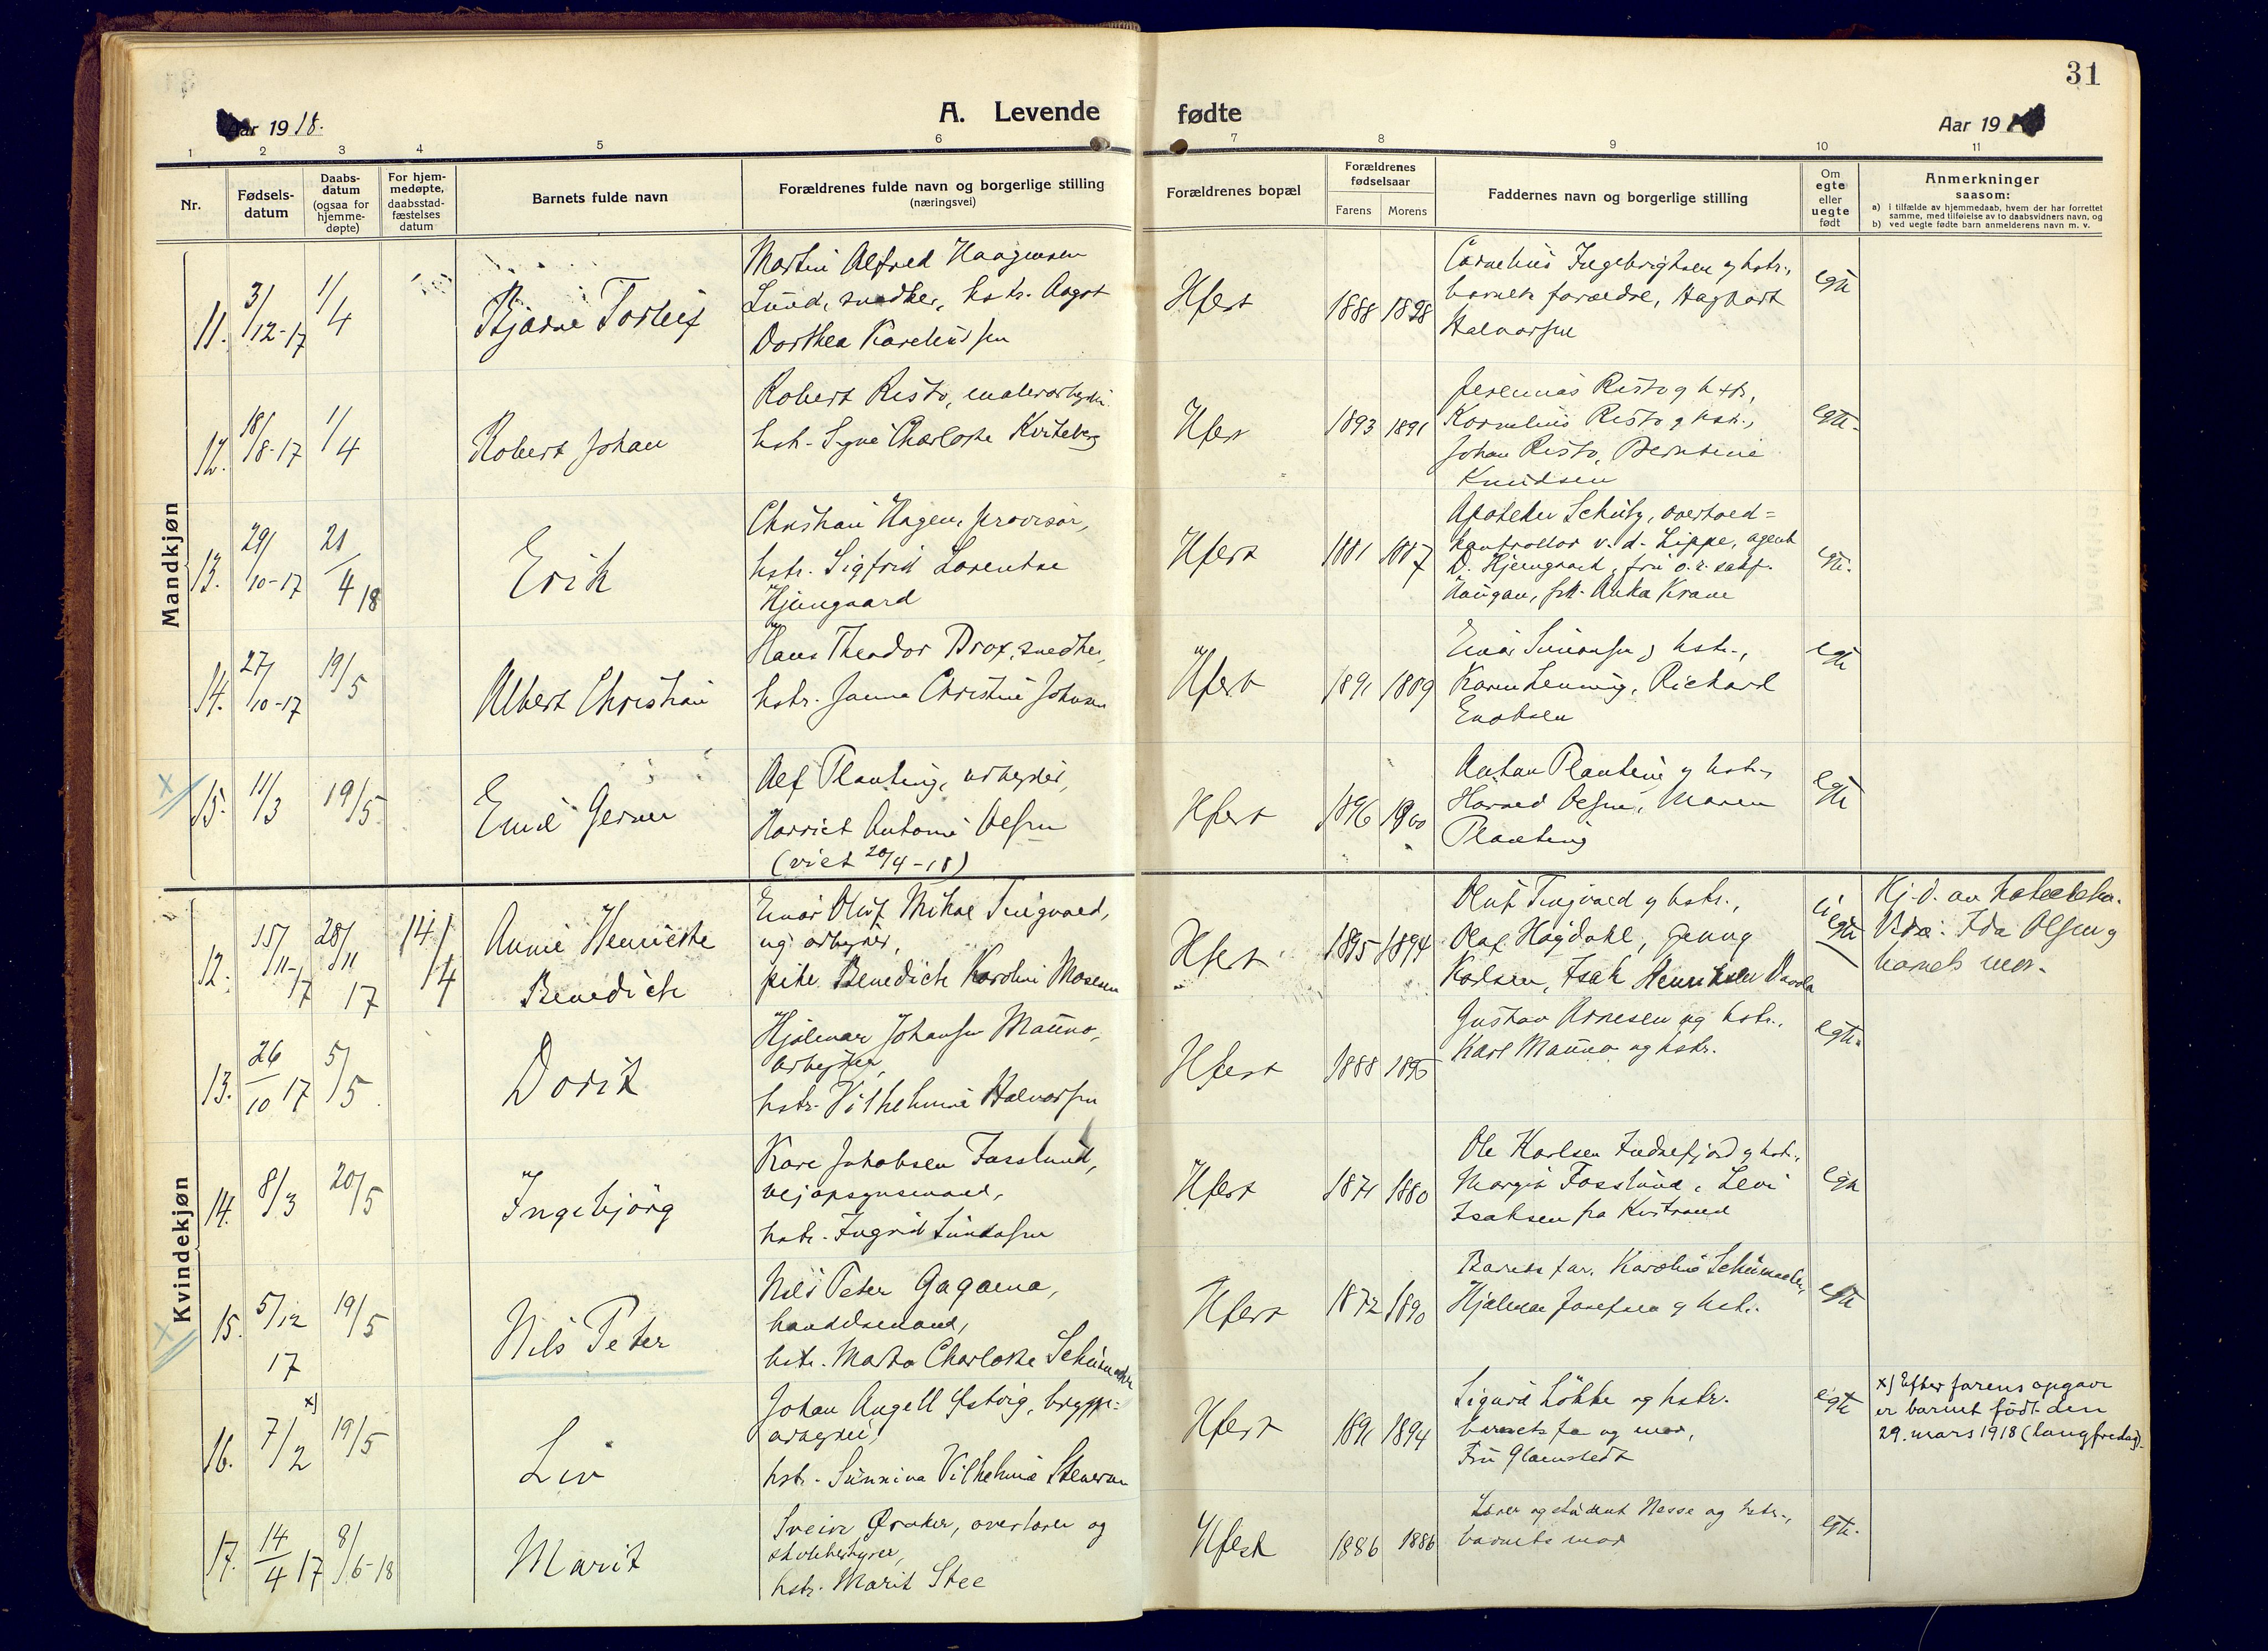 31
Aar 1918.
A. Levende fødte
Aar 19
1 2 3 4 5 6 7 8 9 10 11
Nr.
Fødsels-
datum
Daabs-
datum
(ogsaa for
hjemme-
døpte)
For hjem-
medøpte,
daabsstad-
fæstelses
datum
Barnets fulde navn
Forældrenes fulde navn og borgerlige stilling
(næringsvei)
Forældrenes bopæl
Forældrenes
fødselsaar
Farens Morens
Faddernes navn og borgerlige stilling
Om
egte
eller
uegte
født
Anmerkninger
saasom:
a) i tilfælde av hjemmedaab, hvem der har forrettet
samme, med tilføielse av to daabsvidners navn, og
b) ved uegte fødte barn anmelderens navn m. v.
Mandkjøn
11. 3/12-17 1/4
Bjarne Torleif
Martin Alfred Haagensen
Lund, snedker, hstr. Aagot
Dorthea Karelius sen
Hfest 1888 1898
Cornelius Ingebrigtsen og hstr.,
barnets forældre, Hagbart
Halvorsen
egte
12. 18/8-17 1/4
Robert Johan
Robert Risto, malerarbeider
hstr. Signe Charlotte Kviteberg
Hfest 1893 1891
Jeremias Risto og hstr,
Kornelius Risto og hstr.,
Johan Risto, Berntine
Knudsen
egte.
13. 29/10-17 21/4 18
Erik
Christian Hagen, provisor,
hstr. Sigfrid Lorentse
Hjemgaard
Hfest 1881 1887
Apoteker Schuby, overtold=
kontrollør v. d. Lippe, agent
D. Hjemgaard, fru o.r. sakf.
Haugan, frk. Anka Krane
egte.
14. 27/10-17 19/5
Albert Christian
Hans Theodor Brox, snedker,
hstr. Janna Christine Johnsen
Hfest 1891 1889
Einar Simonsen og hstr.,
Karen Lenning, Richard
Enoksen
egte
15. 11/3 19/5
Emil Gerner
Alf Planting, arbeider,
Harriet Antonie Olsen
(viet 20/4-18)
Hfest 1896 1900
Anton Planting og hstr,
Harald Olsen, Maren
Planting
egte
Kvindekjøn
12. 15/11-17 28/11 17 14/4
Annie Henriette
Benedicte
Einar Oluf Mikal Tingvold,
ug. arbeider,
pike Benedicte Karoline Mosesen
Hfest 1895 1894
Oluf Tingvold og hstr.,
Olaf Høgdahl, Jenny
Karlsen, Isak Henriksen
uegte
Hj.d. av
Ida Olsen og
barnets mor.
13. 26/10 17 5/5
Dorit
Hjalmar Johansen Mauno,
arbeider,
hstr. Vilhelmine Halvorsen
Hfest 1888 1895
Gustav Arnesen og hstr.,
Karl Mauno og hstr.
egte.
14. 8/3 20/5
Ingebjørg
Kare Jakobsen Fosslund,
veiopsynsmand,
hstr. Ingrid
Hfest 1871 1880
Ole Karlsen Indrefjord og hstr.,
Margit Fosslund, Levi
Isaksen fra Kistrand
egte
15. 5/12 17 19/5
Nils Peter
Nils Peter Gagama,
handelsmand,
hstr. Marta Charlotte Schumacher
Hfest 1872 1890
Barnets far, Karoline Schumacher,
Hjalmar Josefsen og hstr.
egte
16. 7/2 x) 19/5
Liv
Johan Angell Østvig, brygge=
arbeider,
hstr. Sunniva Vilhelmine Stenersen
Hfest 1891 1894
Sigurd Løkke og hstr.
barnets far og mor,
Fru Glamstedt
egte
x) Efter farens opgave
er barnet født den
29. mars 1918 (langfredag).
17. 14/4 17 8/6-18
Marit
Svein Øraker, overlærer og
skolebestyrer,
hstr. Marit Stee
Hfest 1886 1886
Lærer og student Nesse og hstr.,
barnets mor
egte.